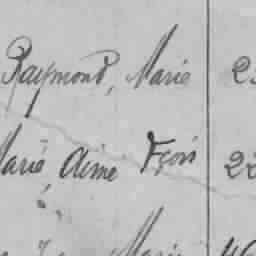 Raymond, Marie 2
Marie, Aimé Fçois 22
Marie